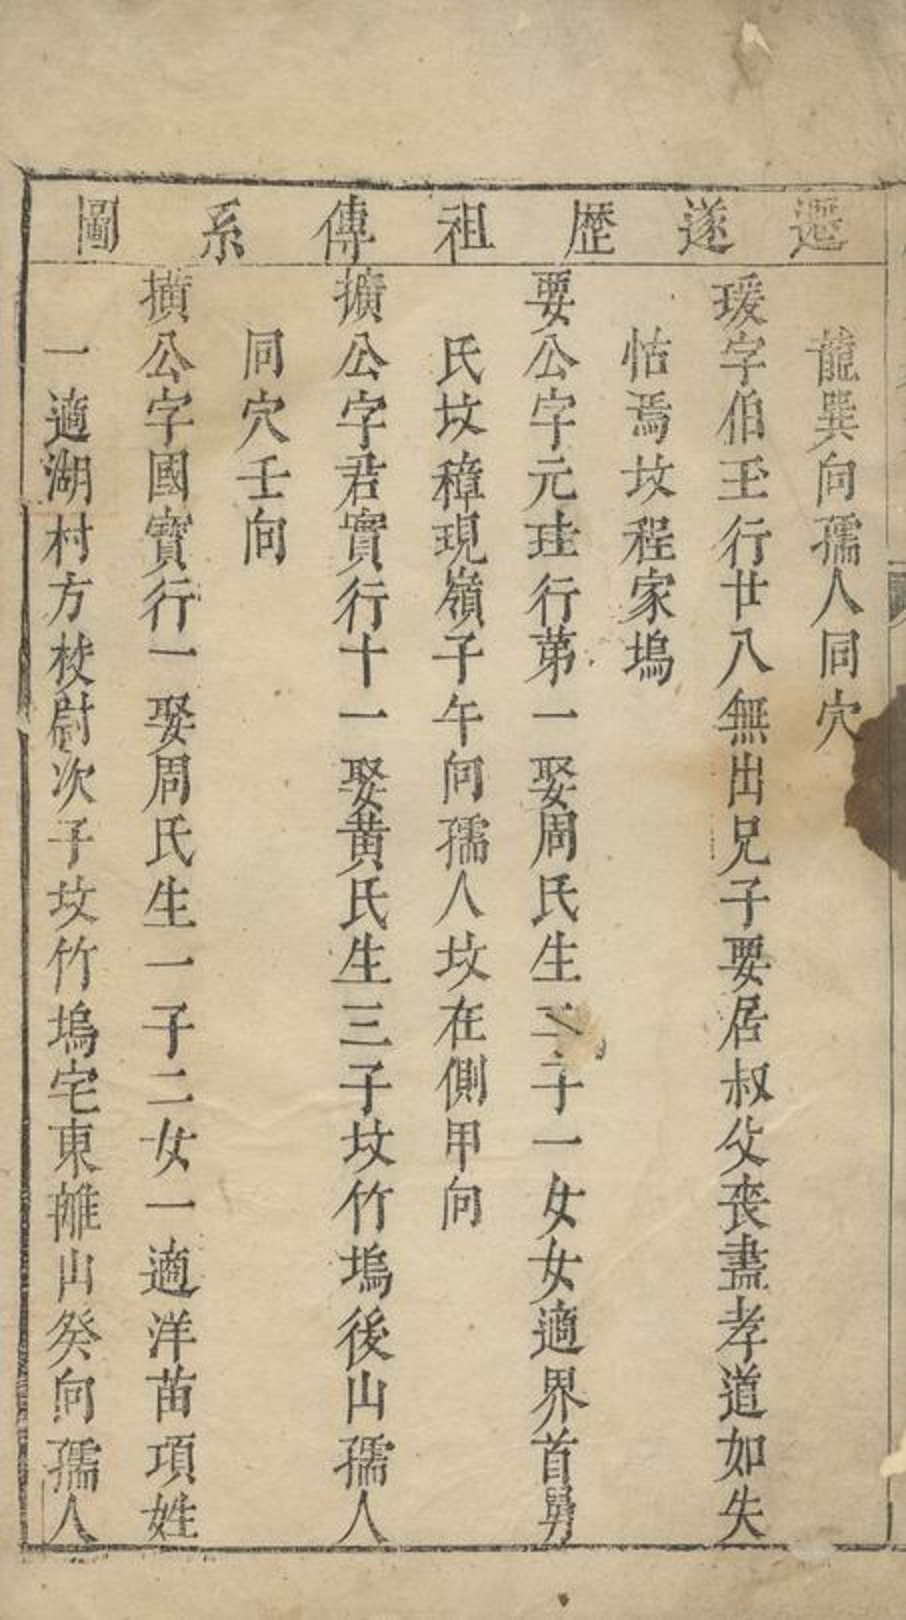 遷遂歷祖傳系圖
龍巽向孺人同穴
瑗字伯玉行廿八無出兄子要居叔父丧盡孝道如失
怙焉坟程家塢
要公字元珪行第一娶周氏生二子一女女適界首舅
氏坟樟現嶺子午向孺人坟在側甲向
擴公字君實行十一娶黄氏生三子坟竹塢後山孺人
同穴壬向
撗公字國寳行一娶周氏生一子二女一適洋苗項姓
一適湖村方校尉次子坟竹塢宅東離山癸向孺人